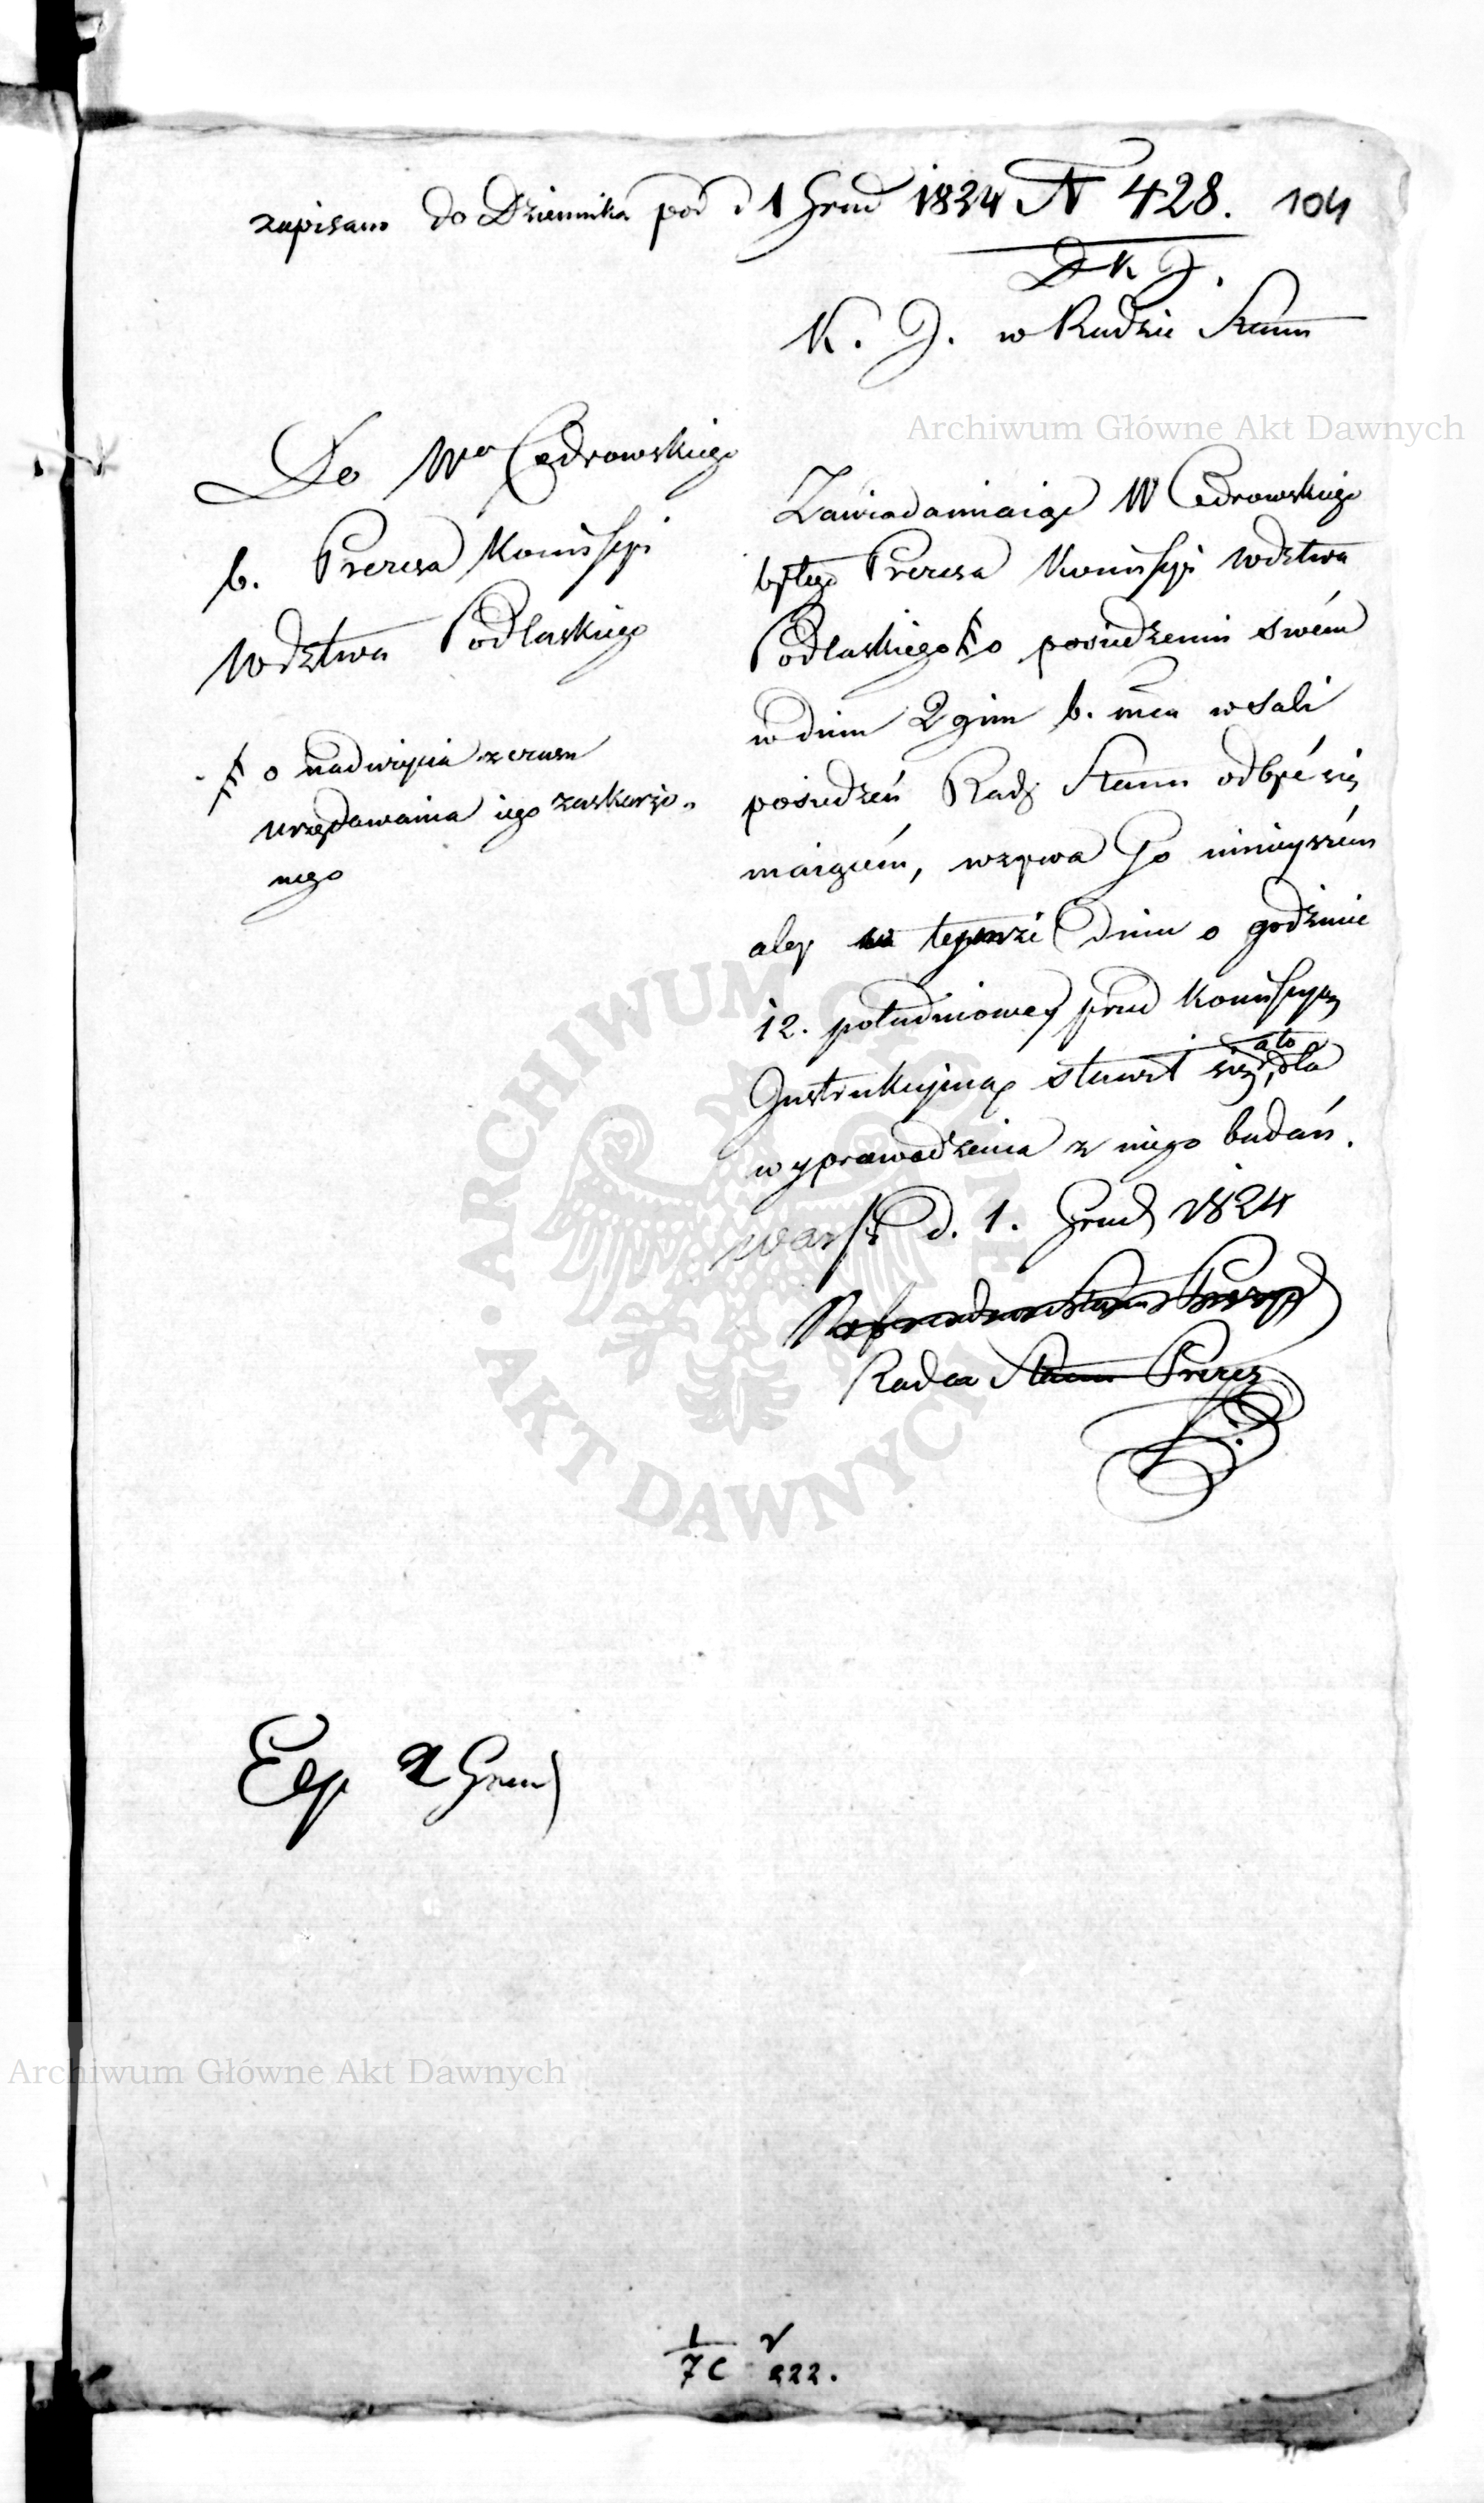 zapisano do Dziennika pod d 1 Grud 1824 N 428. 104
D K J.
K. J. w Radzie Stanu
Archiwum Główne Akt Dawnych
Do Wo Cedrowskiego
b. Prezesa Kommissyi
Wdztwa Podlaskiego
o nadużycia z czasu
urzędowania iego zaskarżo-
nego
Zawiadamiaiąc W Cedrowskiego
byłego Prezesa Kommissyi Wdztwa
Podlaskiego o posiedzeniu swém
w dniu 2gim b. mca w Sali
posiedzeń Rady Stanu odbyć się
maiącém, wzywa Go ninieyszém
aby w tymże dniu o godzinie
12. południowey przed Kommissyą
Instrukcyiną stawił się, a to dla
wyprowadzenia z niego badań.
Warsz d. 1. Grud 1824
Radca Stanu Prezes
Exp 2 Grud
ARCHIWUM GŁÓWNE
AKT DAWNYCH
Archiwum Główne Akt Dawnych
1
7C 222.